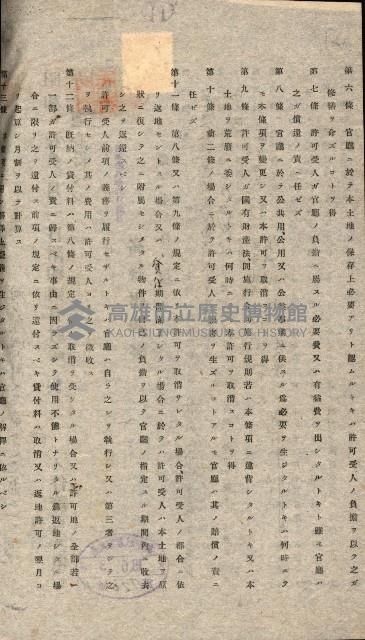 第六條 官廳ニ於テ本土地ノ保存上必要アリト認ムルトキハ許可受人ノ負擔ヲ以テ之ガ
修繕ヲ命ズルコトヲ得
第七條 許可受人ガ官廳ノ負擔ニ屬スル必要費又ハ有益費ヲ出シタルトキト雖モ官廳ハ
之ガ償還ノ責ニ任ゼズ
第八條 官廳ニ於テ公共用、公用又ハ公
供スル爲必要ヲ生ジタルトキハ何時ニテ
モ本條項ヲ變更シ又ハ本許可ヲ取消スコトヲ得
第九條 許可受人ガ國有財產法、同施行
施行規則若ハ本條項ニ違背シタルトキ又ハ本
土地ヲ荒廢ニ委シタルトキハ何時ニテモ本許可ヲ取消スコトヲ得
第十條 前二條ノ場合ニ於テ許可受人ニ
害ヲ生ズルコトアルモ官廳ハ其ノ賠償ノ責ニ
任ゼズ
第十一條 第八條又ハ第九條ノ規定ニ依
許可ヲ取消サレタル場合、許可受人ノ都合ニ依
リ返地セントスル場合又ハ
期間滿
シタル場合ニ於テハ許可受人ハ本土地ヲ原
狀ニ復シ之ニ附屬セシメタル物件
ノ負擔ヲ以テ官廳ノ指定スル期間內ニ收去
シ之ヲ返還スベシ
許可受人前項ノ義務ヲ履行セザルトキハ官廳ハ自ラ之ヲ執行シ又ハ第三者ヲシテ之
ヲ執行セシメ其ノ費用ハ許可受人ヨリ之ヲ徵收ス
第十二條 旣納ノ貸付料ハ第八條ノ規定
取消ヲ受ケタル場合又ハ許可地ノ全部若ハ
一部ガ許可受人ノ責ニ歸スベキ事由ニ因ラズシテ使用不能トナリタル爲返地シタル場
合ニ限リ之ヲ還付ス前項ノ規定ニ依リ還付スベキ貸付料ハ取消又ハ返地許可ノ翌月ヨ
リ起算シ月割ヲ以テ計算ス
第十三條
生ジタルトキハ官廳ノ解釋ニ依ルベシ
高雄市立歷史博物館
KAOHSIUNG MUSEUM OF HISTORY